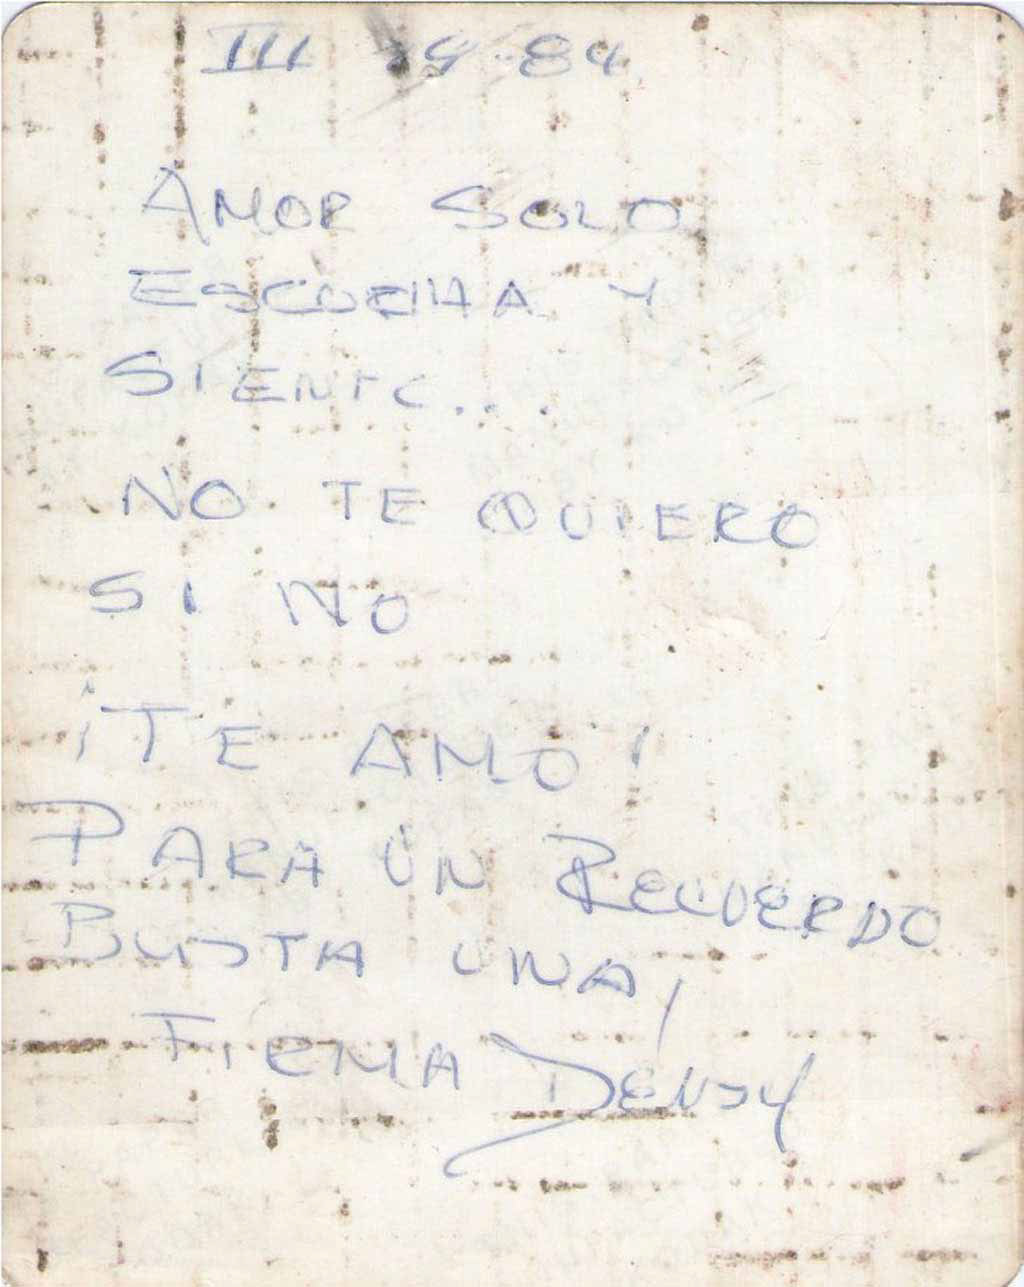 III 29-84
AMOR SOLO
ESCUCHA Y
SIENTE...
NO TE QUIERO
SI NO
¡TE AMO!
PARA UN RECUERDO
BUSTA UNA,
FIRMA DENSY